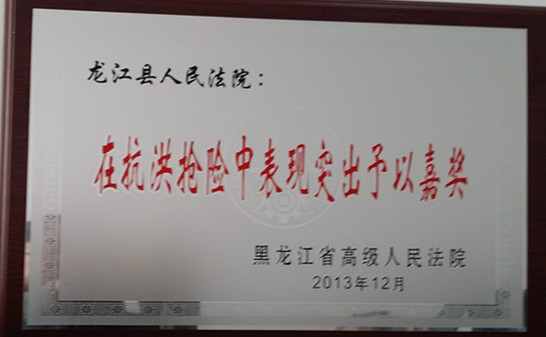 龙江县人民法院：
在抗洪抢险中表现突出予以嘉奖
黑龙江省高级人民法院
2013年12月